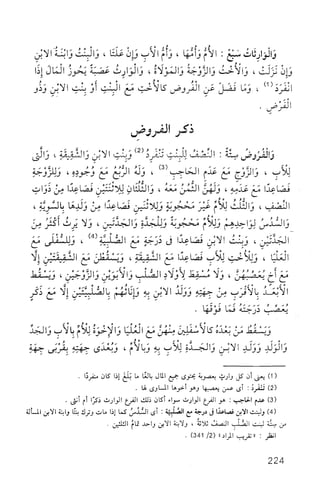 وَالْوَارِثَاتُ سَبْعٌ : الْأُمُّ وَأُمُّهَا ، وَأُمُّ الْأَبِ وَإِنْ عَلَتَا ، وَالْبِنْتُ وَابْنَةُ الِابْنِ
وَإِنْ نَزَلَتْ ، وَالْأُخْتُ وَالزَّوْجَةُ وَالْمَوْلَاةُ ، وَالْوَارِثُ عَصَبَةٌ يَحُوزُ الْمَالَ إِذَا
انْفَرَدَ (١) ، وَمَا فَضَلَ عَنِ الْفُرُوضِ كَالْأُخْتِ مَعَ الْبِنْتِ أَوْ بِنْتِ الِابْنِ وَذُو
الْفَرْضِ .
ذكر الفروض
وَالْفُرُوضُ سِتَّةٌ : النِّصْفُ لِلْبِنْتِ تَنْفَرِدُ (٢) وَبِنْتِ الِابْنِ وَالشَّقِيقَةِ ، وَالَّتِي
لِلْأَبِ ، وَالزَّوْجِ مَعَ عَدَمِ الْحَاجِبِ (٣) ، وَلَهُ الرُّبُعُ مَعَ وُجُودِهِ ، وَلِلزَّوْجَةِ
فَصَاعِدًا مَعَ عَدَمِهِ ، وَلَهُنَّ الثُّمُنُ مَعَهُ ، وَالثُّلُثَانِ لِلِاثْنَتَيْنِ فَصَاعِدًا مِنْ ذَوَاتِ
النِّصْفِ ، وَالثُّلُثُ لِلْأُمِّ غَيْرَ مَحْجُوبَةٍ وَلِلِاثْنَيْنِ فَصَاعِدًا مِنْ وَلَدِهَا بِالسَّوِيَّةِ ،
وَالسُّدُسُ لِوَاحِدِهِمْ وَلِلْأُمِّ مَحْجُوبَةً وَلِلْجَدَّةِ وَالْجَدَّتَيْنِ ، وَلَا يَرِثُ أَكْثَرُ مِنَ
الْجَدَّتَيْنِ ، وَبِنْتِ الِابْنِ فَصَاعِدًا فِي دَرَجَةٍ مَعَ الصُّلْبِيَّةِ (٤) ، وَلِلسُّفْلَى مَعَ
الْعُلْيَا ، وَلِلْأُخْتِ لِلْأَبِ فَصَاعِدًا مَعَ الشَّقِيقَةِ ، وَيَسْقُطْنَ مَعَ الشَّقِيقَتَيْنِ إِلَّا
مَعَ أَخٍ يُعَصِّبُهُنَّ ، وَلَا مُسْقِطَ لِأَوْلَادِ الصُّلْبِ وَالْأَبَوَيْنِ وَالزَّوْجَيْنِ ، وَيَسْقُطُ
الْأَبْعَدُ بِالْأَقْرَبِ مِنْ جِهَتِهِ وَوَلَدُ الِابْنِ بِهِ وَإِنَاثُهُمْ بِالصُّلْبِيَّتَيْنِ إِلَّا مَعَ ذَكَرٍ
يُعَصِّبُ دَرَجَتَهُ فَمَا فَوْقَهَا .
وَيَسْقُطُ مَنْ بَعْدَهُ كَالْأَسْفَلِينَ مِنْهُنَّ مَعَ الْعُلْيَا وَالْإِخْوَةُ لِلْأُمِّ بِالْأَبِ وَالْجَدِّ
وَالْوَلَدِ وَوَلَدِ الِابْنِ وَالْجَدَّةِ لِلْأَبِ بِهِ وَبِالْأُمِّ ، وَبُعْدَى جِهَةٍ بِقُرْبَى جِهَةٍ
(1) يعني أن كل وارث بعصوبة يحتوي جميع المال بالغًا ما بلغ إذا كان منفردًا .
(2) تَنْفَرِدُ : أي عمن يعصبها وهو أخوها المساوي لها .
(3) عدم الحاجب : هو الفرع الوارث سواء أكان ذلك الفرع الوارث ذكرًا أم أنثى .
(4) وَلِبِنْتِ الابْنِ فصاعدًا في درجة مع الصُّلْبِيَّة : أي السُّدُسُ كما إذا مات وترك بنتًا وابنة الابن المسألة
من ستة لبنت الصُّلْبِ النصف ثلاثة ، ولابنة الابن واحد تمامُ الثلثين .
انظر : « تقريب المراد » (2/ 341) .
224